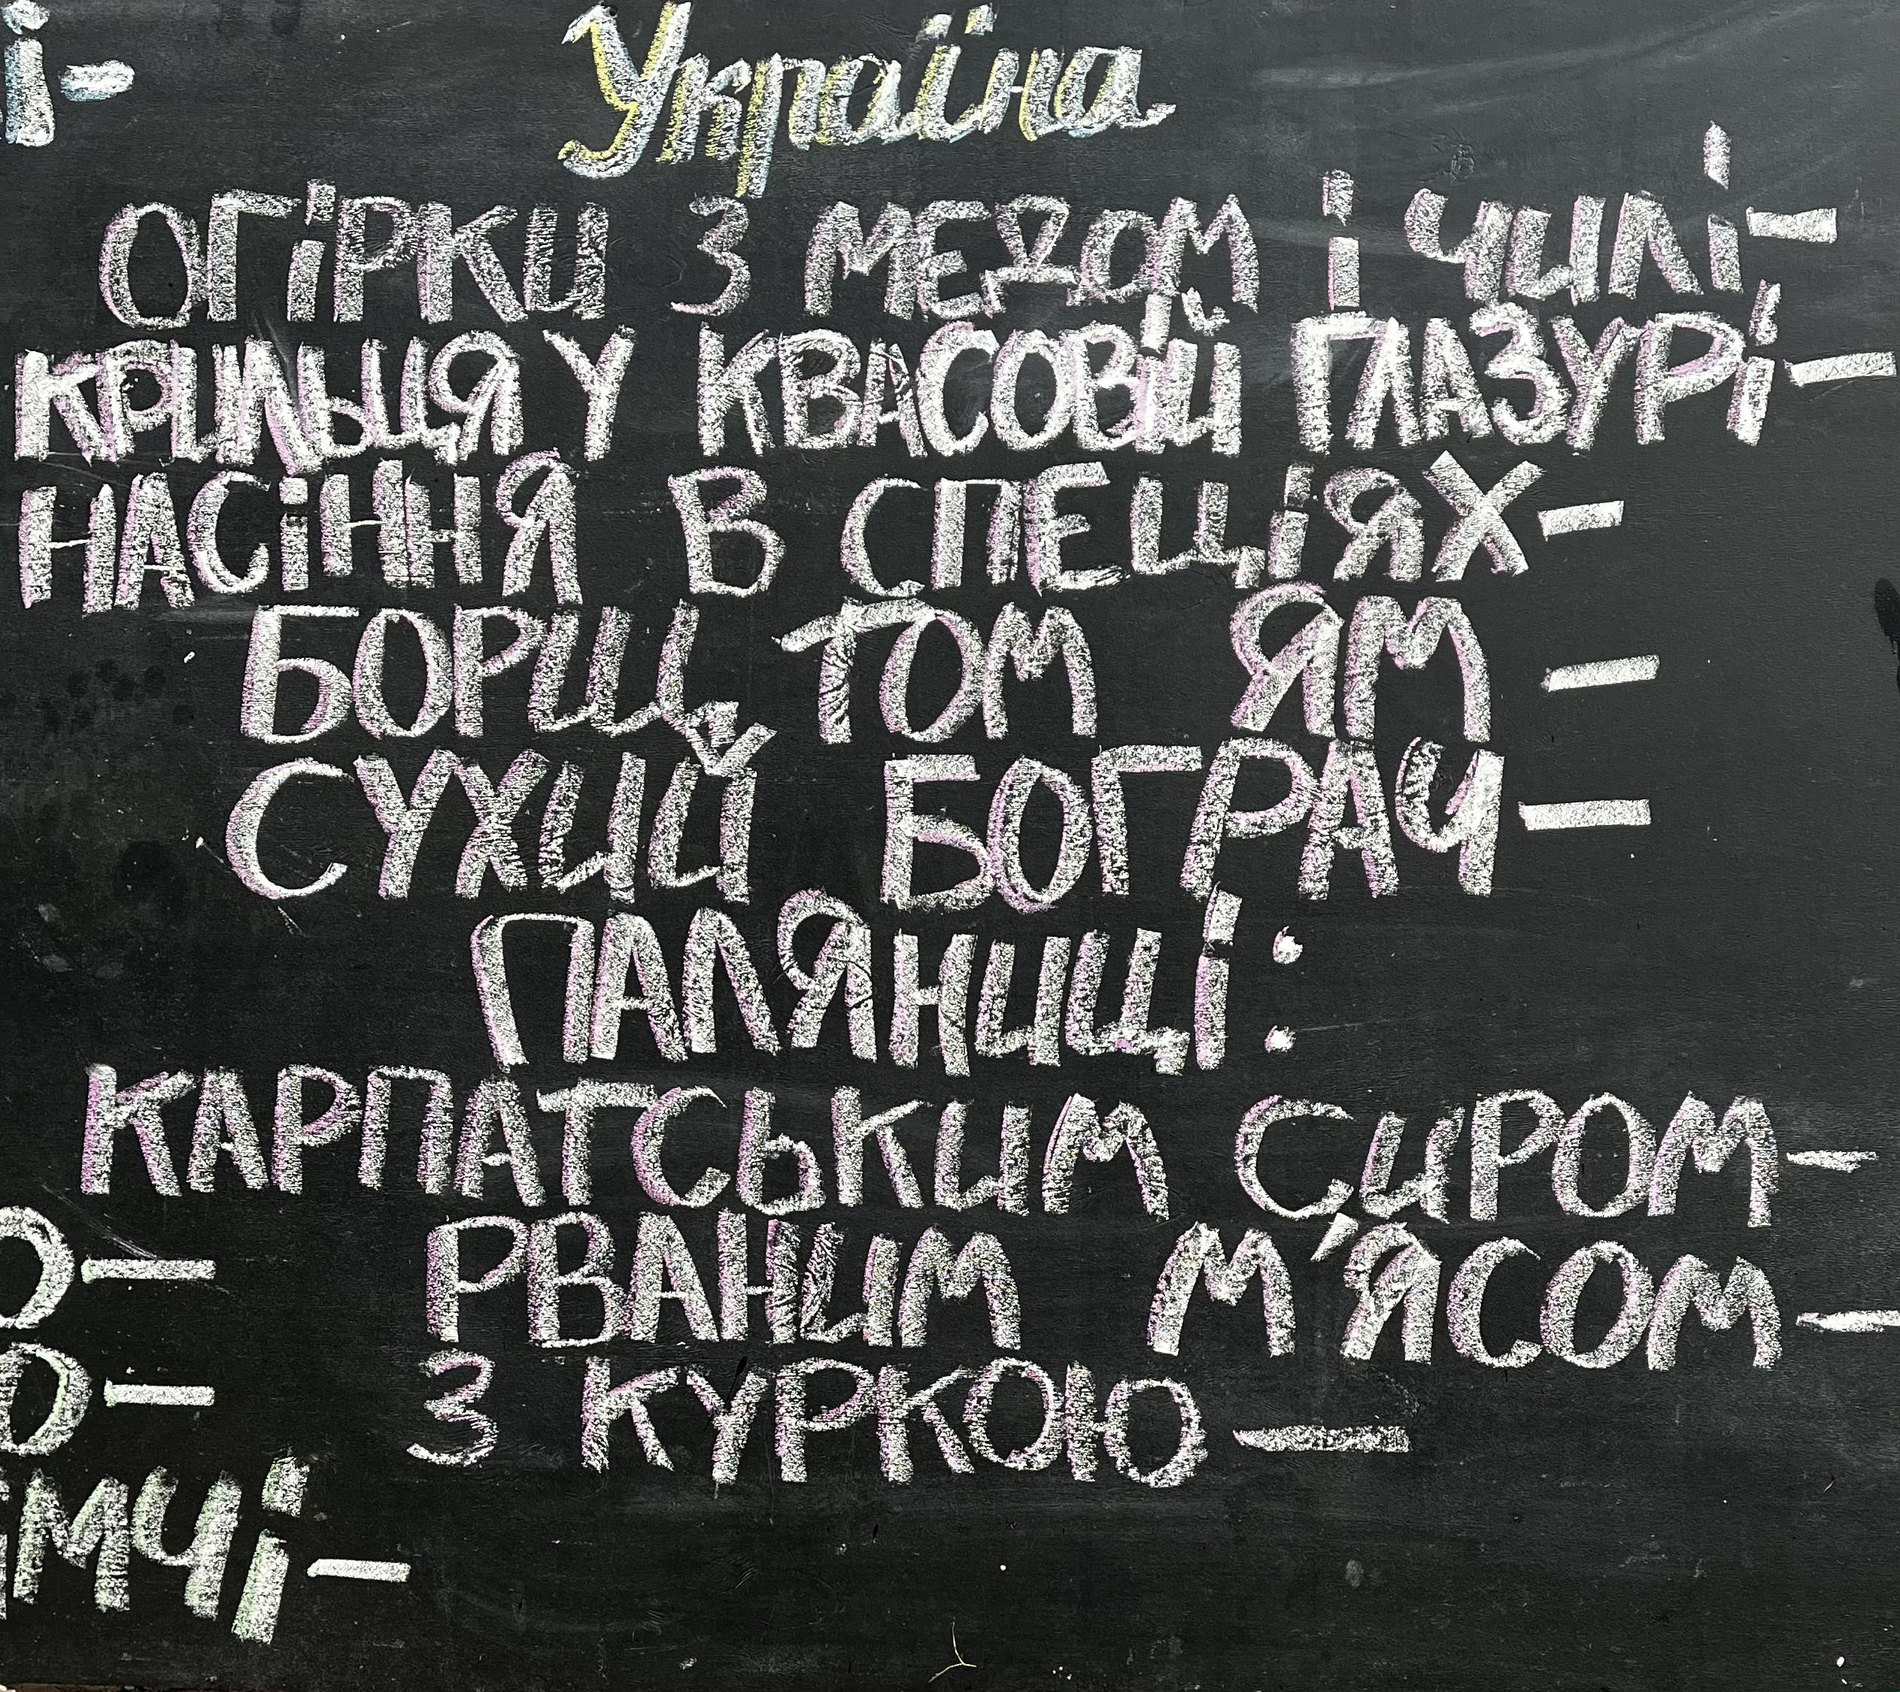 Україна
ОГІРКИ З МЕДОМ І ЧИЛІ-
КРИЛЬЦЯ У КВАСОВІЙ ГЛАЗУРІ-
НАСІННЯ В СПЕЦІЯХ-
БОРЩ ТОМ ЯМ -
СУХИЙ БОГРАЧ-
ПАЛЯНИЦІ:
КАРПАТСЬКИМ СИРОМ-
РВАНИМ М'ЯСОМ-
З КУРКОЮ-